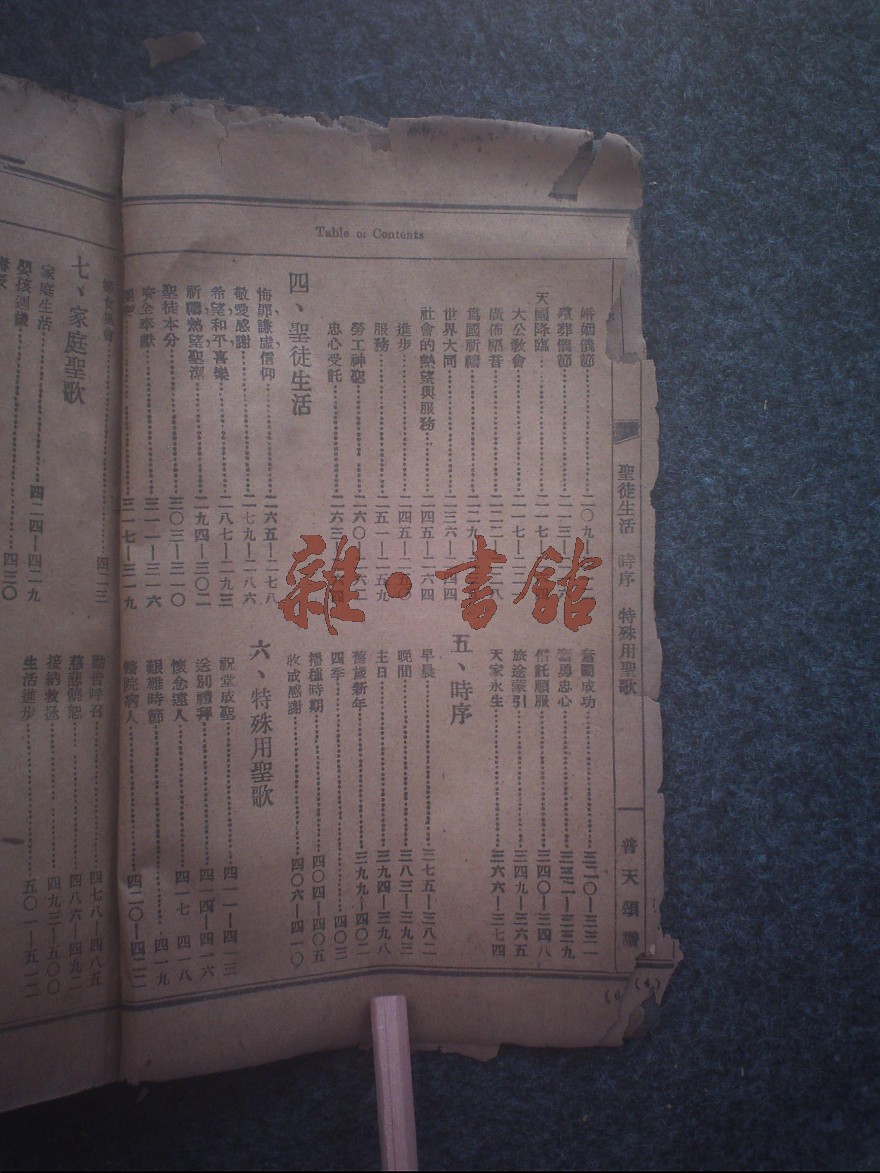 Table of Contents
聖徒生活 時序 特殊用聖歌
普天頌讚
婚姻儀節
殯葬儀節
天國降臨
大公教會
廣佈福音
爲國祈禱
世界大同 二三六—二四四
社會的熱望與服務
進步
服務 二五一—二五九
勞工神聖
忠心受託
四、聖徒生活
悔罪、謙虛、信仰 二六五—二七八
敬愛、感謝 二七九—二八六
希望、和平、喜樂 二八七—二九三
祈禱、熱望、聖潔 二九四—三〇二
聖徒本分 三〇三—三一〇
安全奉獻 三一一—三一六
三一七—三一九
奮鬭成功
奮勇忠心
信託順服 三四〇—三四八
旅途蒙引 三四九—三六五
天家永生 三六六—三七四
五、時序
早晨 三七五—三八二
晚間 三八三—三九三
主日 三九四—三九八
舊歲新年 三九九—四〇二
四季 四〇三
播種時期 四〇四—四〇五
收成感謝 四〇六—四一〇
六、特殊用聖歌
祝堂成聖 四一一—四一三
送別禮拜 四一四—四一六
懷念遠人 四一七 四一八
艱難時節 四一九
醫院病人 四二〇—四二二
四二三
七、家庭聖歌
家庭生活 四二四—四二九
嬰孩週歲 四三〇
勸善呼召 四七八—四八五
慈悲饒恕 四八六—四九二
接納救拯 四九三—五〇〇
生活進步 五〇一—五一二
雜·書館